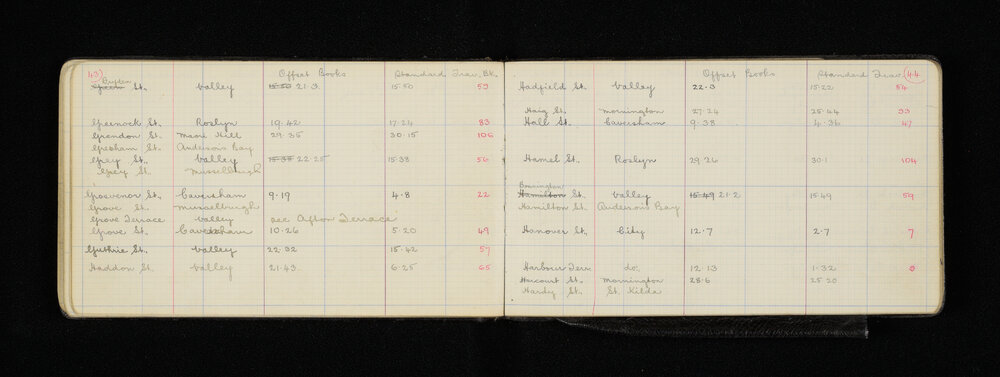 43 Offset Books Standard Trav. Bk.
Griffen
Green St. Valley 15·50 21·3 15·50 59
Greenock St. Roslyn 19·42 17·24 83
Grendon St. Maori Hill 29·35 30·15 106
Gresham St. Andersons Bay
Grey St. Valley 15·35 22·25 15·38 56
Grey St. Musselburgh
Grosvenor St. Caversham 9·19 4·8 22
Grove St. Musselburgh
Grove Terrace Valley see Afton Terrace
Grove St. Caversham 10·26 5·20 49
Guthrie St. Valley 22·32 15·42 57
Haddon St. Valley 21·43 6·25 65
Offset Books Standard Trav. 44
Hadfield St. Valley 22·3 15·22 54
Haig St. Mornington 27·24 25·44 33
Hall St. Caversham 9·38 4·36 47
Hamel St. Roslyn 29·26 30·1 104
Bonnington
Hamilton St. Valley 15·49 21·2 15·49 59
Hamilton St. Anderson Bay
Hanover St. City 12·7 2·7 7
Harbour Terr. do. 12·13 1·32
Harcourt St. Mornington 28·6 25·20
Hardy St. St. Kilda